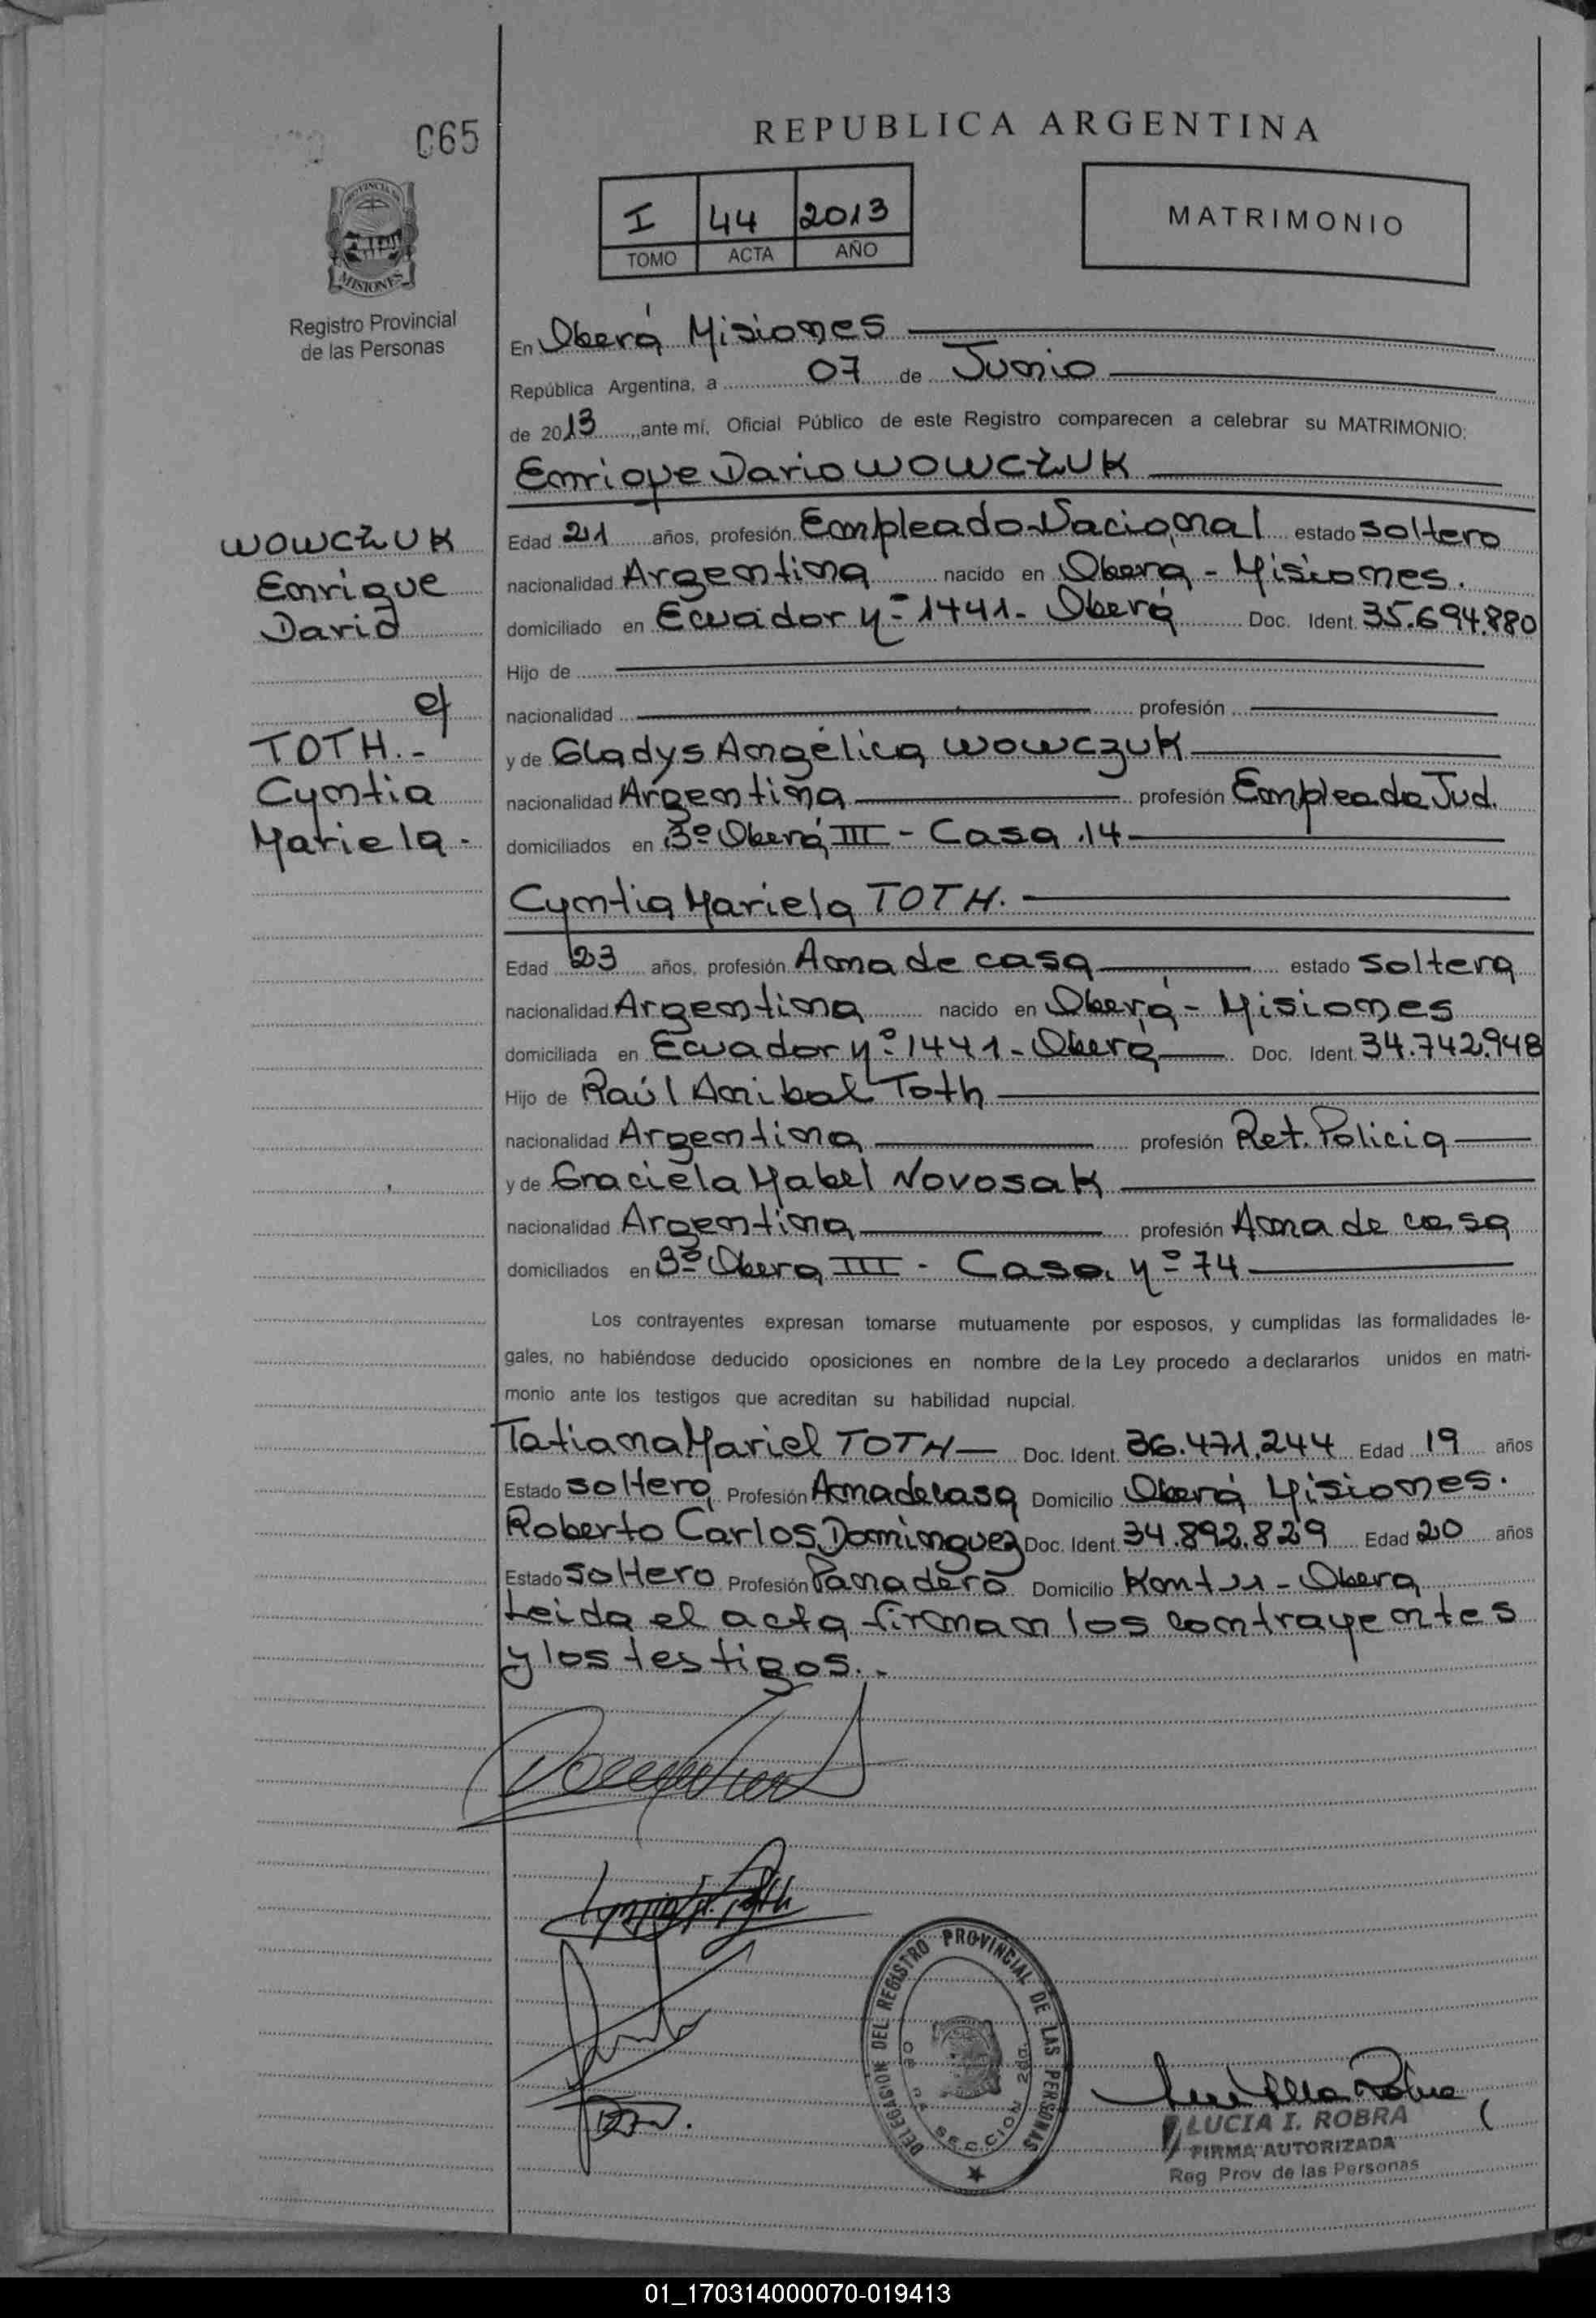 065
REPUBLICA ARGENTINA
I 44 2013
TOMO ACTA AÑO
MATRIMONIO
PROVINCIA DE
MISIONES
Registro Provincial
de las Personas
En Oberá Misiones
República Argentina, a 07 de Junio
de 2013 ante mí, Oficial Público de este Registro comparecen a celebrar su MATRIMONIO:
Enrique Dario WOWCZUK
WOWCZUK
Enrique
Dario
c/
TOTH.-
Cyntia
Mariela.
Edad 21 años, profesión Empleado Nacional estado soltero
nacionalidad Argentina nacido en Oberá - Misiones.
domiciliado en Ecuador Nº 1441 - Oberá Doc. Ident. 35.694.880
Hijo de
nacionalidad profesión
y de Gladys Angélica WOWCZUK
nacionalidad Argentina profesión Empleada Jud.
domiciliados en Bº Oberá III - Casa 14
Cyntia Mariela TOTH.
Edad 23 años, profesión Ama de casa estado soltera
nacionalidad Argentina nacido en Oberá - Misiones
domiciliada en Ecuador Nº 1441 - Oberá Doc. Ident. 34.742.948
Hijo de Raúl Anibal Toth
nacionalidad Argentina profesión Ret. Policia
y de Graciela Mabel Novosak
nacionalidad Argentina profesión Ama de casa
domiciliados en Bº Obera III - Casa Nº 74
Los contrayentes expresan tomarse mutuamente por esposos, y cumplidas las formalidades le-
gales, no habiéndose deducido oposiciones en nombre de la Ley procedo a declararlos unidos en matri-
monio ante los testigos que acreditan su habilidad nupcial.
Tatiana Mariel TOTH Doc. Ident. 36.471.244 Edad 19 años
Estado soltera Profesión Ama de casa Domicilio Oberá Misiones.
Roberto Carlos Dominguez Doc. Ident. 34.892.829 Edad 20 años
Estado soltero Profesión Panadero Domicilio Km - Obera
Leida el acta firman los contrayentes
y los testigos.-
DELEGACION DEL REGISTRO PROVINCIAL DE LAS PERSONAS
SECCION 2da.
LUCIA I. ROBRA
FIRMA AUTORIZADA
Reg Prov de las Personas
01_170314000070-019413